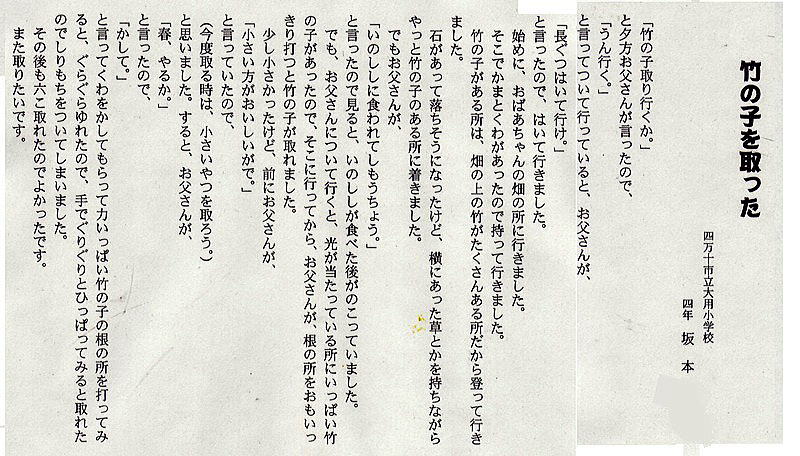 竹の子を取った
四万十市立大用小学校
四年 坂 本
「竹の子取り行くか。」
と夕方お父さんが言ったので、
「うん行く。」
と言ってついて行っていると、お父さんが、
「長ぐつはいて行け。」
と言ったので、はいて行きました。
始めに、おばあちゃんの畑の所に行きました。
そこでかまとくわがあったので持って行きました。
竹の子がある所は、畑の上の竹がたくさんある所だから登って行き
ました。
石があって落ちそうになったけど、横にあった草とかを持ちながら
やっと竹の子のある所に着きました。
でもお父さんが、
「いのししに食われてしもうちょう。」
と言ったので見ると、いのししが食べた後がのこっていました。
でも、お父さんについて行くと、光が当たっている所にいっぱい竹
の子があったので、そこに行ってから、お父さんが、根の所をおもいっ
きり打つと竹の子が取れました。
少し小さかったけど、前にお父さんが、
「小さい方がおいしいがで。」
と言っていたので、
(今度取る時は、小さいやつを取ろう。)
と思いました。すると、お父さんが、
「春、やるか。」
と言ったので、
「かして。」
と言ってくわをかしてもらって力いっぱい竹の子の根の所を打ってみ
ると、ぐらぐらゆれたので、手でぐりぐりとひっぱってみると取れた
のでしりもちをついてしまいました。
その後も六こ取れたのでよかったです。
また取りたいです。